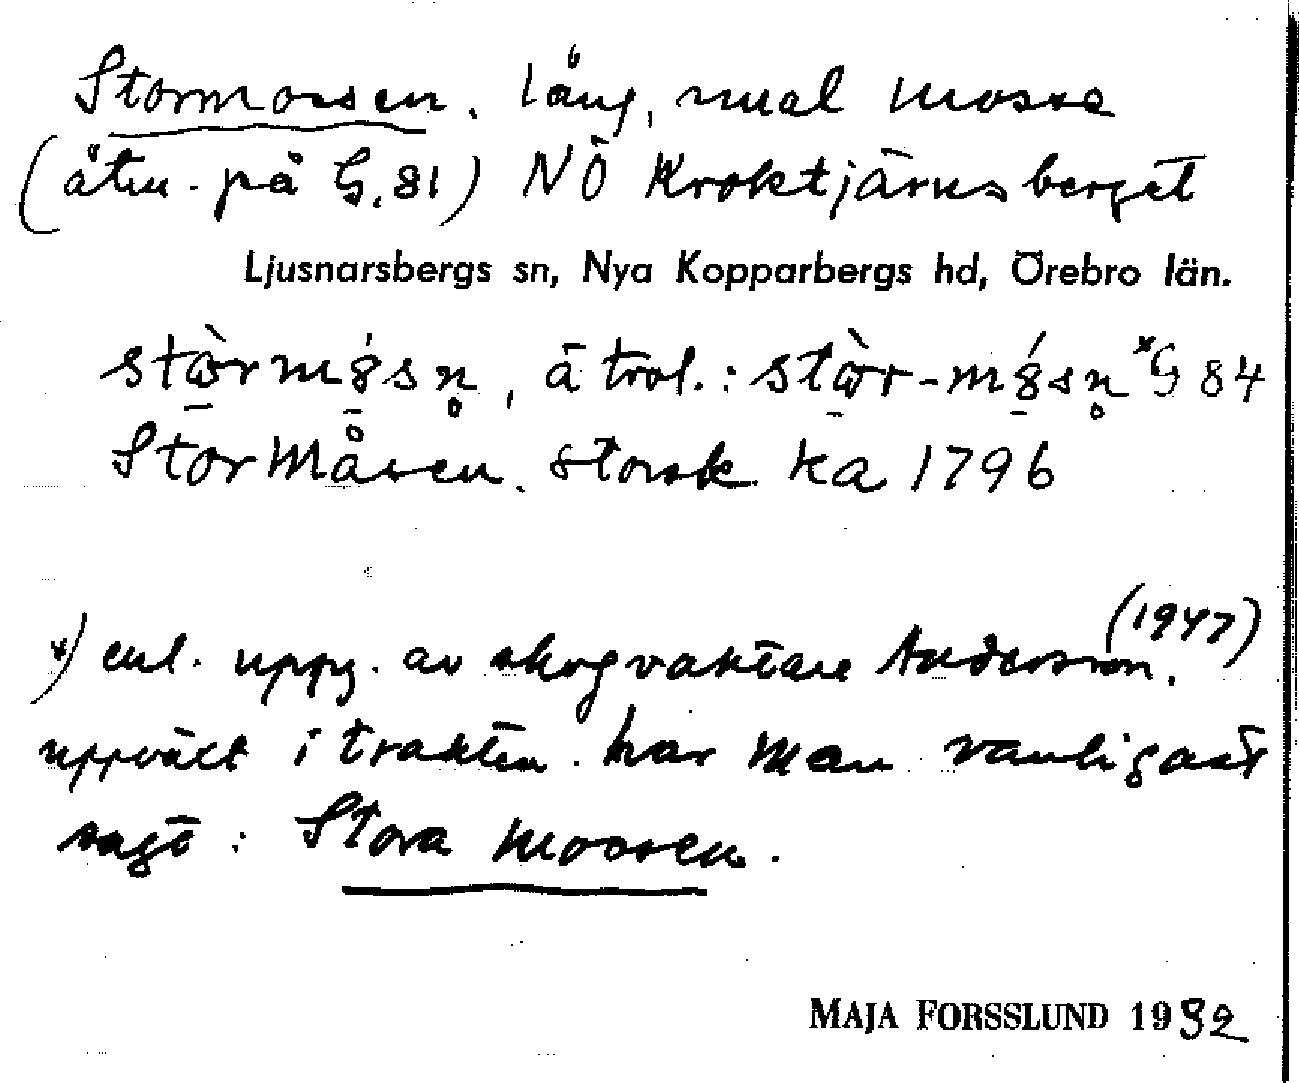 Stormossen. lång, smal mosse
(åtm. på G. 81) NÖ Kroktjärnsberget
Ljusnarsbergs sn, Nya Kopparbergs hd, Örebro län.
, ä trol.: G 84
Stor Måsen. storsk. ka 1796
*) enl. uppg. av skogvaktare Andersson. (1947)
uppväxt i trakten har man vanligast
sagt: Stora mossen.
MAJA FORSSLUND 1932